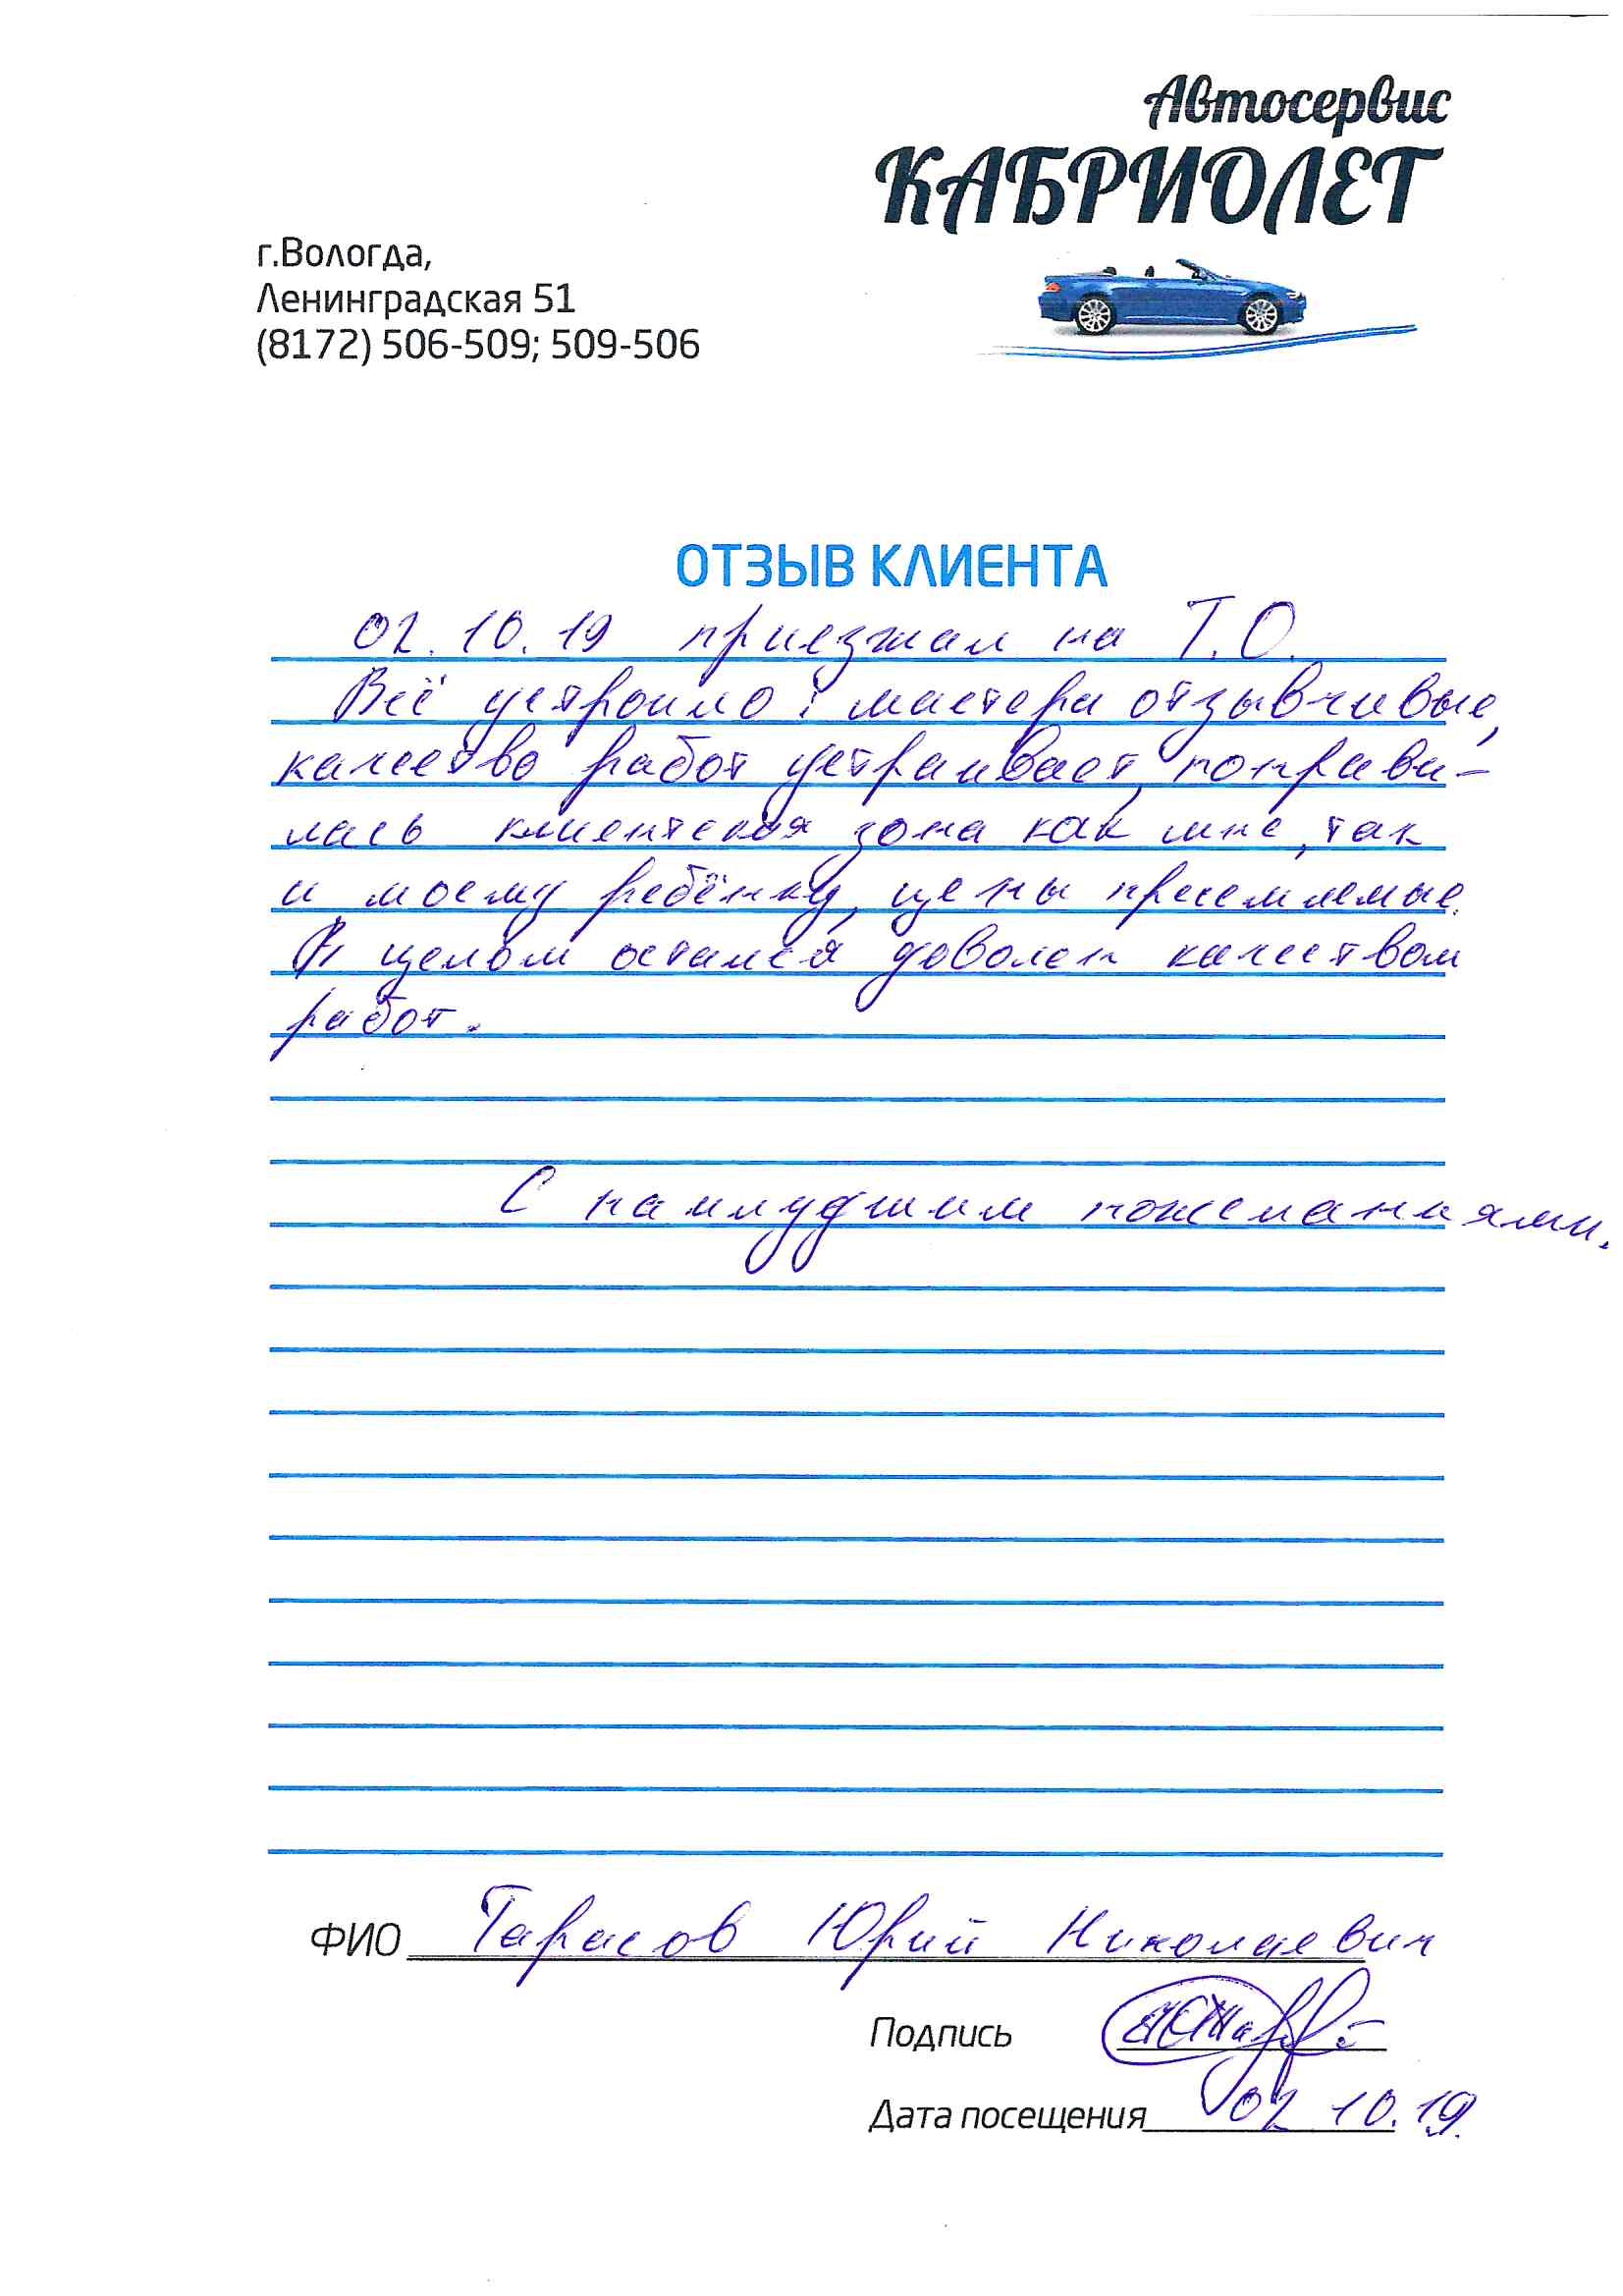 Автосервис
КАБРИОЛЕТ
г.Вологда,
Ленинградская 51
(8172) 506-509; 509-506
ОТЗЫВ КЛИЕНТА
02.10.19 приезжал на Т.О.
Всё устроило: мастера отзывчивые,
качество работ устраивает, понрави-
лась клиентская зона как мне, так
и моему ребёнку, цены приемлемые.
В целом остался доволен качеством
работ.
С наилудшим пожеланиями.
ФИО Тарасов Юрий Николаевич
Подпись
Дата посещения 02 10.19.